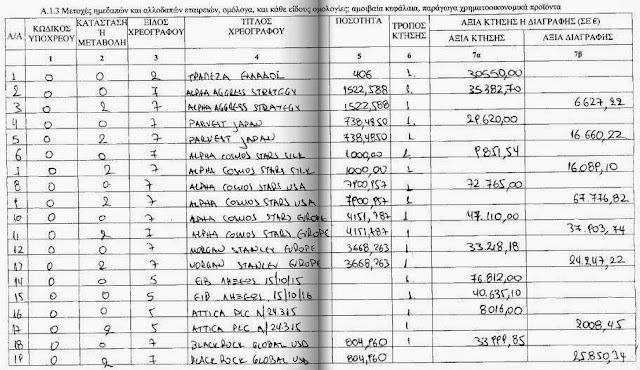 Α.1.3 Μετοχές ημεδαπών και αλλοδαπών εταιρειών, ομόλογα, και κάθε είδους ομολογίες; αμοιβαία κεφάλαια, παράγωγα χρηματοοικονομικά προϊόντα
Α/Α ΚΩΔΙΚΟΣ ΥΠΟΧΡΕΟΥ ΚΑΤΑΣΤΑΣΗ Ή ΜΕΤΑΒΟΛΗ ΕΙΔΟΣ ΧΡΕΟΓΡΑΦΟΥ ΤΙΤΛΟΣ ΧΡΕΟΓΡΑΦΟΥ ΠΟΣΟΤΗΤΑ ΤΡΟΠΟΣ ΚΤΗΣΗΣ ΑΞΙΑ ΚΤΗΣΗΣ Η ΔΙΑΓΡΑΦΗΣ (ΣΕ €)
ΑΞΙΑ ΚΤΗΣΗΣ ΑΞΙΑ ΔΙΑΓΡΑΦΗΣ
1 2 3 4 5 6 7α 7β
1 0 0 2 ΤΡΑΠΕΖΑ ΕΛΛΑΔΟΣ 406 1 30550,00
2 0 0 7 ALPHA AGGRESS STRATEGY 1522,588 1 35382,70
3 0 2 7 ALPHA AGGRESS STRATEGY 1522,588 1 6627,22
4 0 0 7 PARVEST JAPAN 738,4850 1 29620,00
5 0 2 7 PARVEST JAPAN 738,4850 1 16.660,22
6 0 0 7 ALPHA COSMOS STARS SILK 1000,00 1 9851,54
7 0 2 7 ALPHA COSMOS STARS SILK 1000,00 1 16.089,10
8 0 0 7 ALPHA COSMOS STARS USA 7900,957 1 72.765,00
9 0 2 7 ALPHA COSMOS STARS USA 7900,957 1 67.776,82
10 0 0 7 ALPHA COSMOS STARS EUROPE 4151,787 1 47.110,00
11 0 2 7 ALPHA COSMOS STARS EUROPE 4151,787 1 37.903,74
12 0 0 7 MORGAN STANLEY EUROPE 3668,263 1 33.218,18
13 0 2 7 MORGAN STANLEY EUROPE 3668,263 1 24.847,22
14 0 0 5 EIB ΛΗΞΕΩΣ 15/10/15 1 76.812,00
15 0 0 5 EIB ΛΗΞΕΩΣ 15/10/16 1 40.635,10
16 0 0 5 ATTICA PLC A/24.3.15 1 8016,00
17 0 2 5 ATTICA PLC A/24.3.15 1 2008,45
18 0 0 7 BLACKROCK GLOBAL USD 804,960 1 33999,85
19 0 2 7 BLACKROCK GLOBAL USD 804,960 1 25850,34